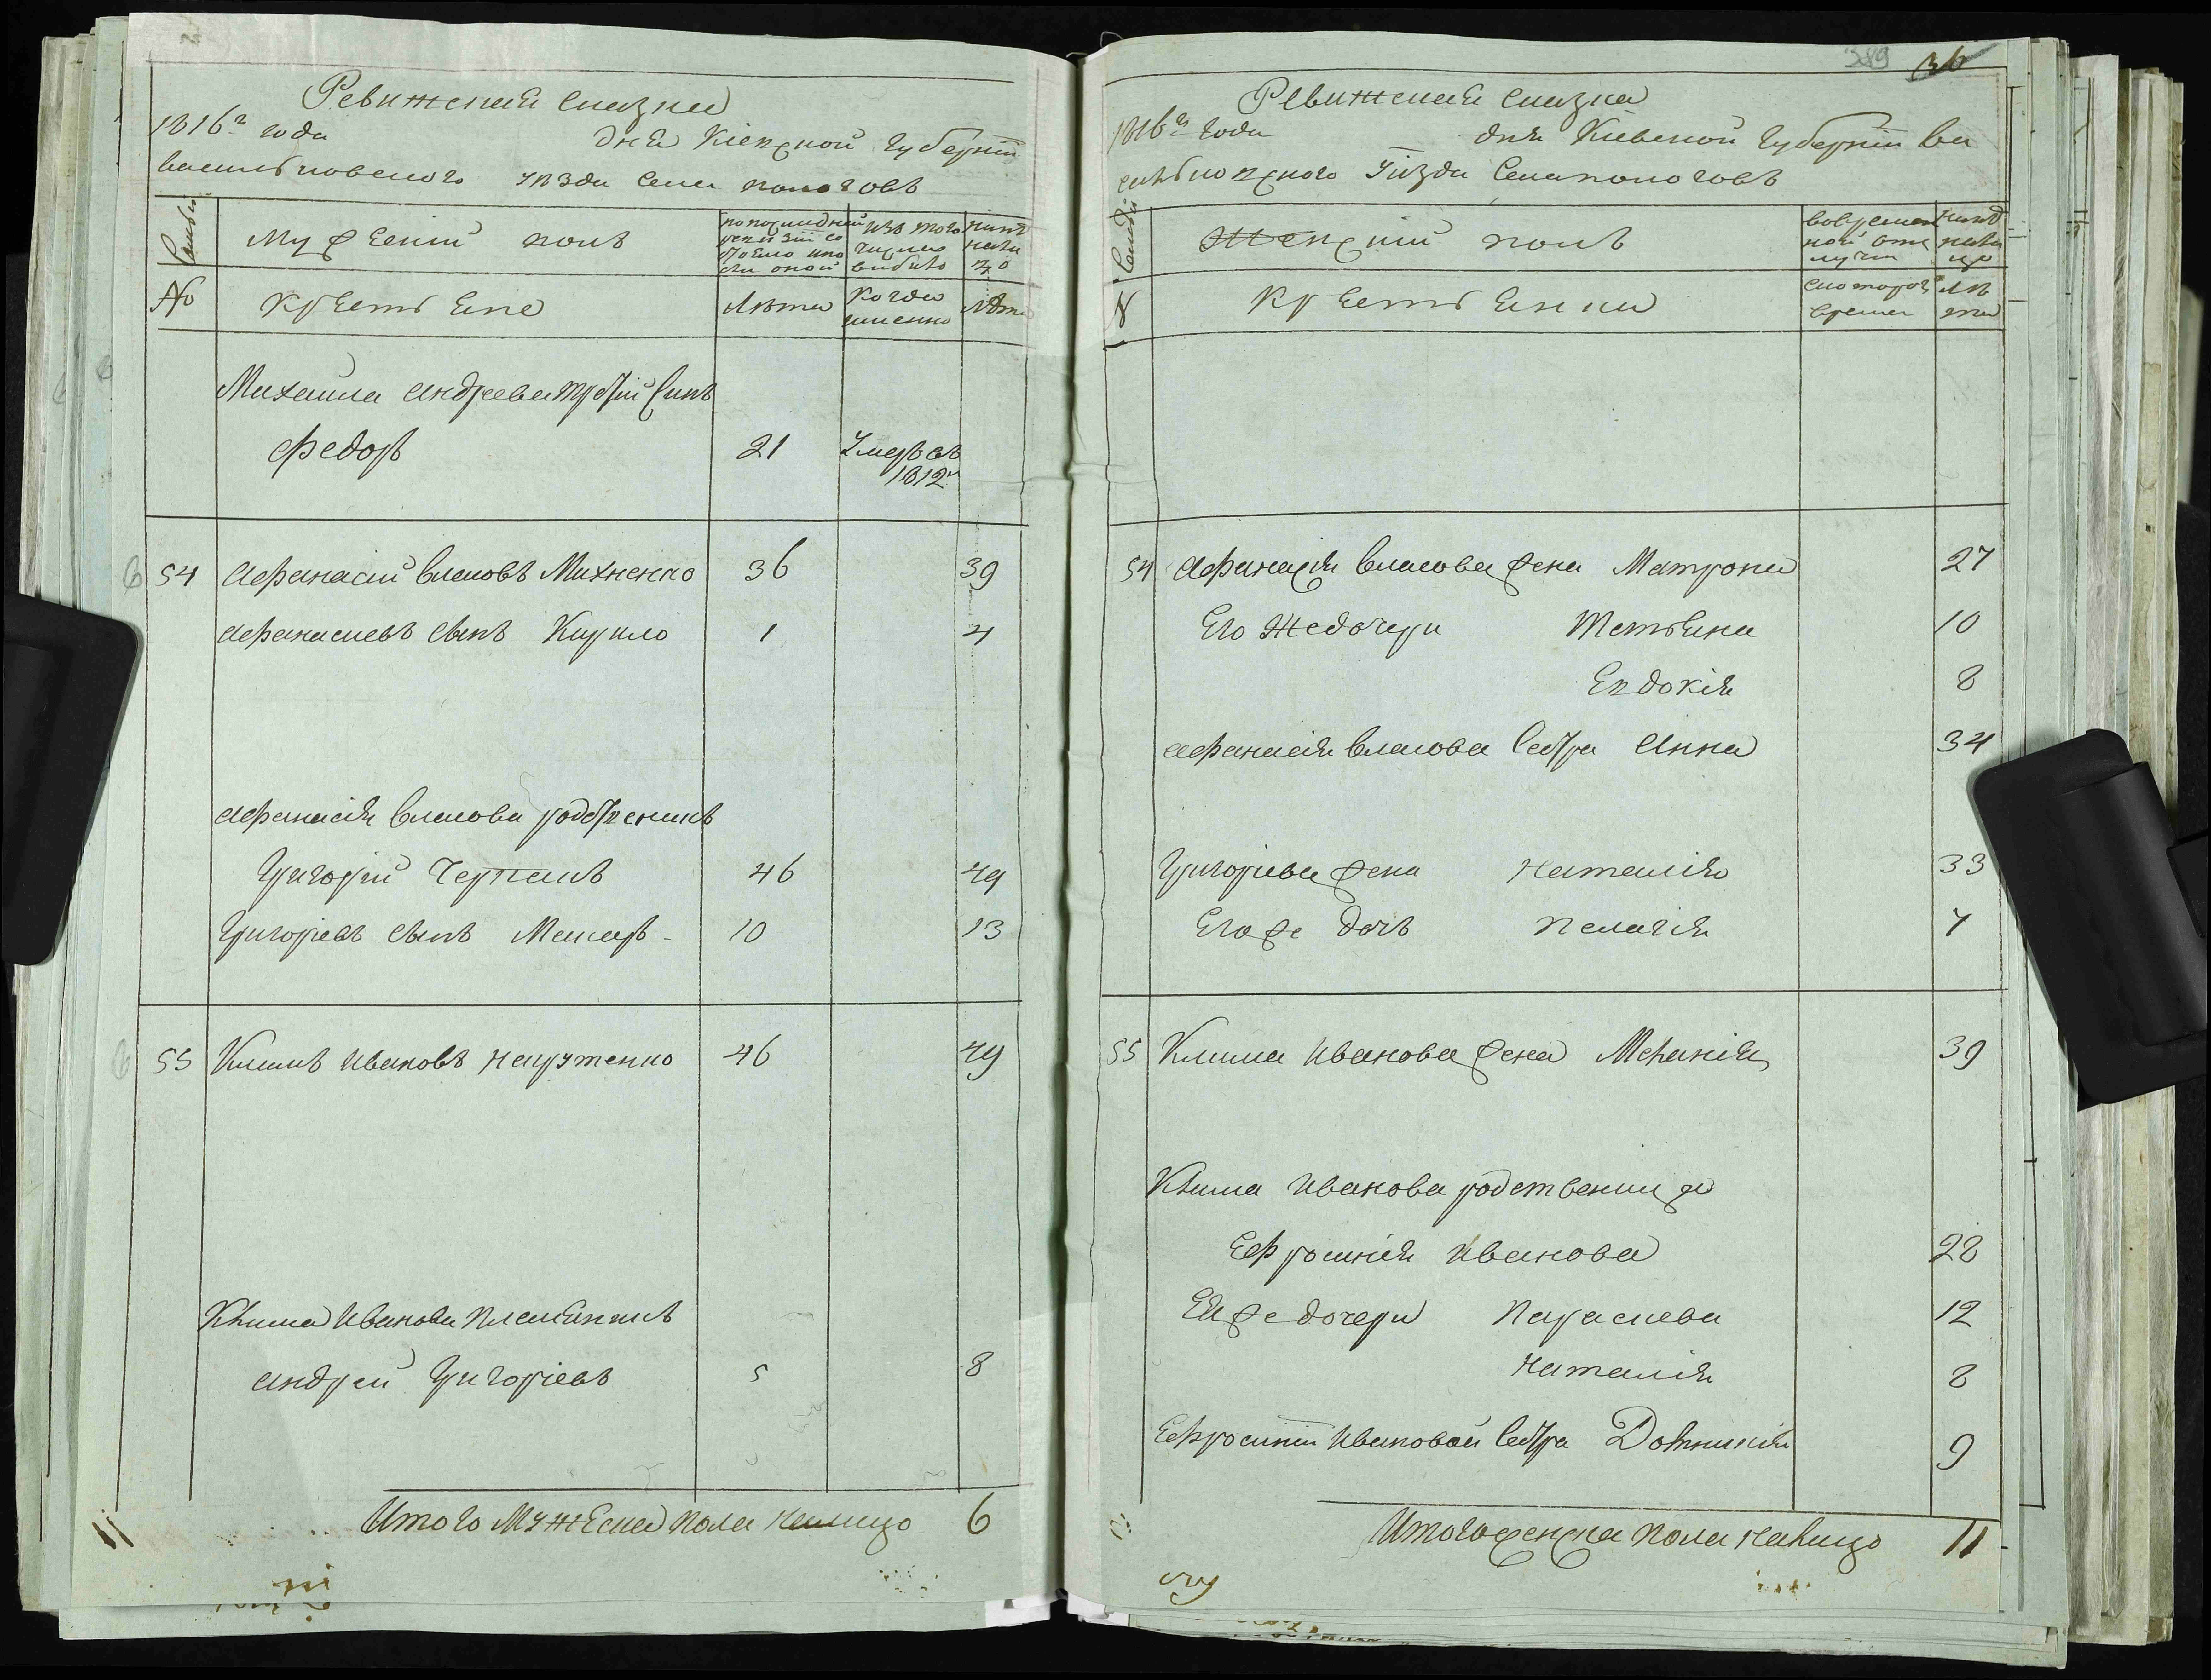 Ревижская сказка
1816г года дня Кіевской Губерніи
васильковского уезда села пологовъ
Семьи
Мужеский полъ
по последней ревизіи состояло и после оной
изъ того числа выбыло
ныне налицо
№
крестьяне
Лѣта
когда именно
Лѣта
Михайла андреева третій Синъ
Федоръ 21 Умеръ въ 1812м
54 Афанасий власовъ Михненко 36 39
афанасиевъ сынъ Кирило 1 4
афанасія власова родственникъ
Григорій 46 49
Григоріевъ сынъ Макаръ 10 13
55 Климъ Ивановъ Нагуженко 46 49
Клима Иванова племянникъ
андрей Григоріевъ 5 8
Итого Мужеска пола налицо 6
11
389 36
Ревижская сказка
1816го года дня Кіевской Губерніи ва
сильковского Уизда Села пологовъ
Семьи
Женский полъ
во временной отлучки
ныне налицо
№
крестьянки
с которого времени
Лѣта
54 Афанасія власова жена Матрона 27
Его же дочери Татьяна 10
Евдокія 8
афанасія власова Сестра Анна 34
Григорьева жена Наталія 33
Его же дочь пелагія 7
55 Клима Иванова жена Меланія 39
Клима Иванова родственница
Ефросинія Иванова 28
Ея же дочери Параскева 12
Наталія 8
Ефросиніи Ивановой Сестра Домникія 9
Итого женска пола налицо 11